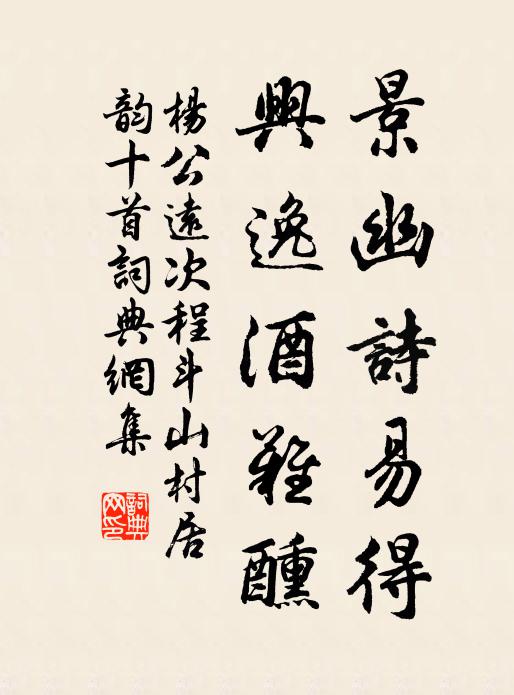 景幽詩易得
興逸酒難醺
楊公遠次程斗山村居
韵十首詞典網集
詞典
网印